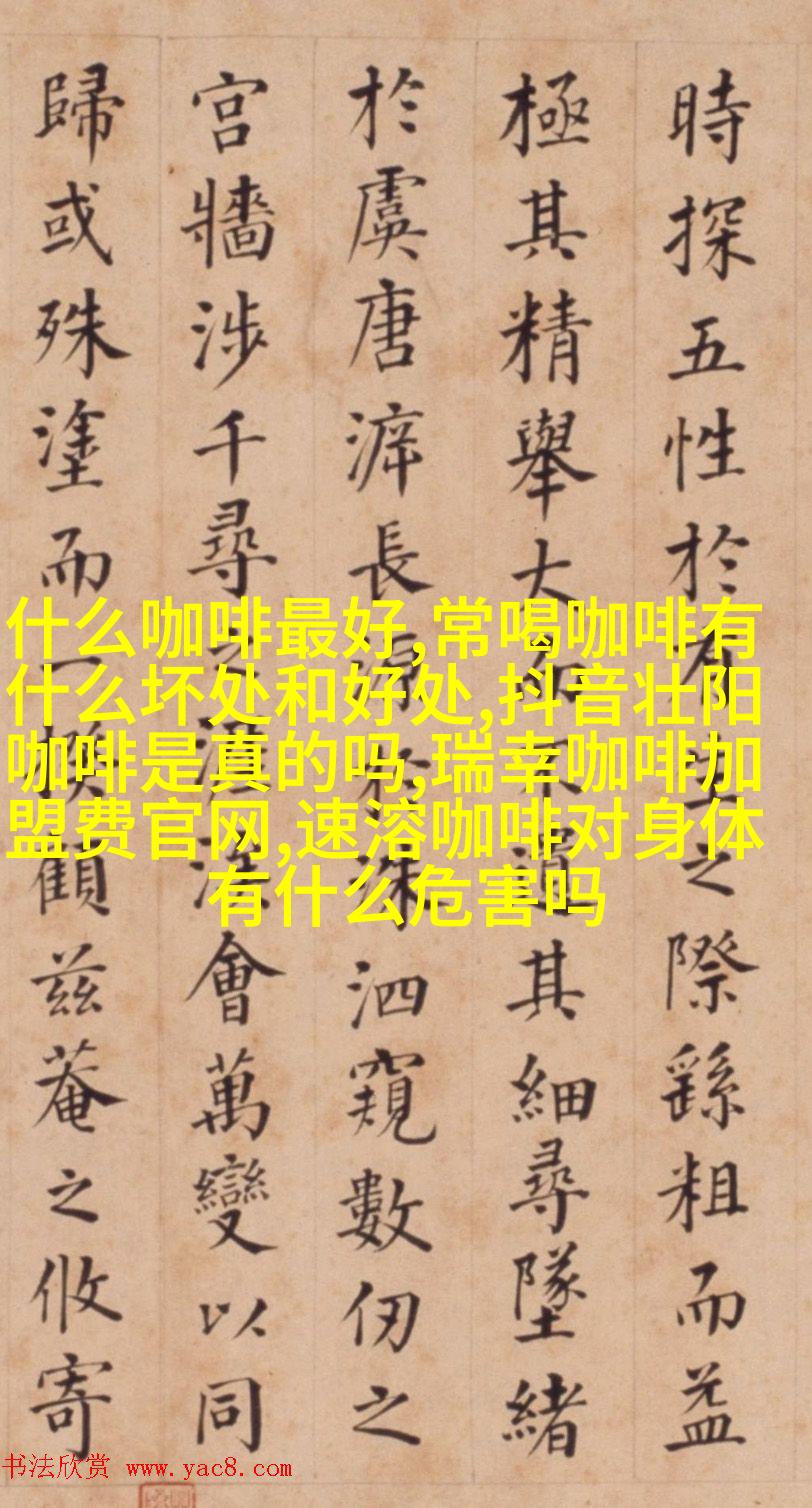 時探五性於有之際繇粗而益
極其精舉大而不遺其細尋墜緒
於虞唐長源於洙泗窺數仞之
宮牆涉千尋之會萬變以同
歸或殊塗而一揆顧茲菴之攸寄
什么咖啡最好,常喝咖啡有
什么坏处和好处,抖音壮阳
咖啡是真的吗,瑞幸咖啡加
盟费官网,速溶咖啡对身体
有什么危害吗
书法欣赏 www.yac8.com